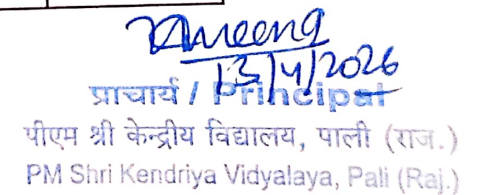 13/4/2026
प्राचार्य / Principal
पीएम श्री केन्द्रीय विद्यालय, पाली (राज.)
PM Shri Kendriya Vidyalaya, Pali (Raj.)